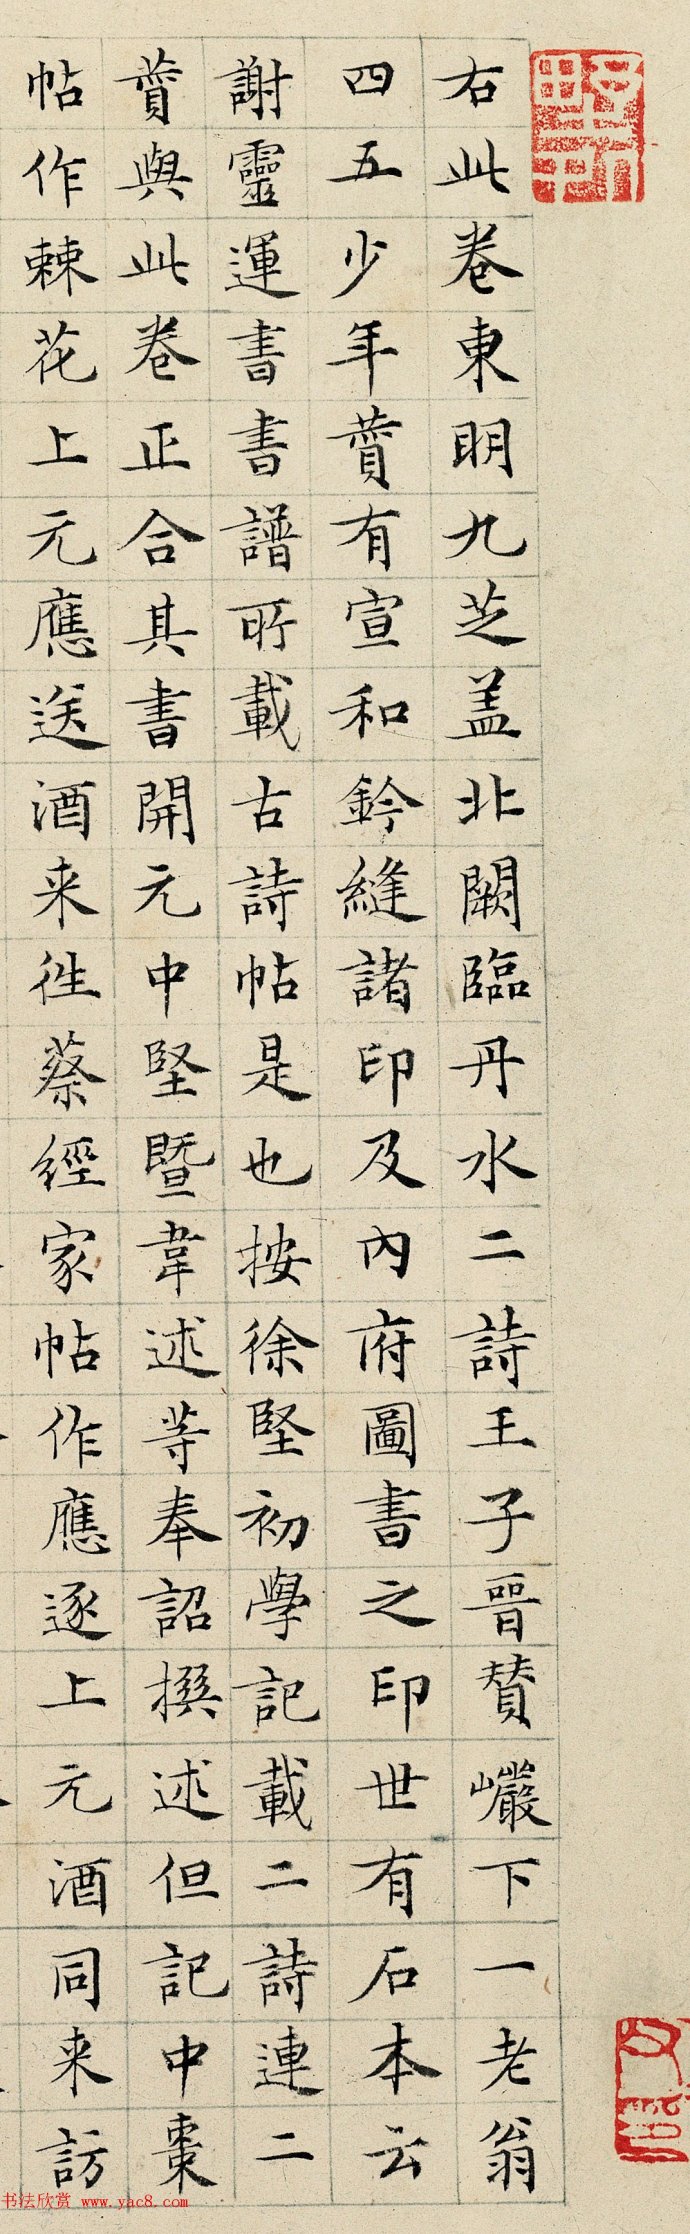 右此卷東明九芝盖北闕臨丹水二詩王子晉賛巗下一老翁
四五少年賛有宣和鈐縫諸印及內府圖書之印世有石本云
謝靈運書書譜所載古詩帖是也按徐堅初學記載二詩連二
賛與此卷正合其書開元中堅暨韋述等奉詔撰述但記中棗
帖作棘花上元應送酒来往蔡經家帖作應逐上元酒同来訪
书法欣赏 www.yac8.com